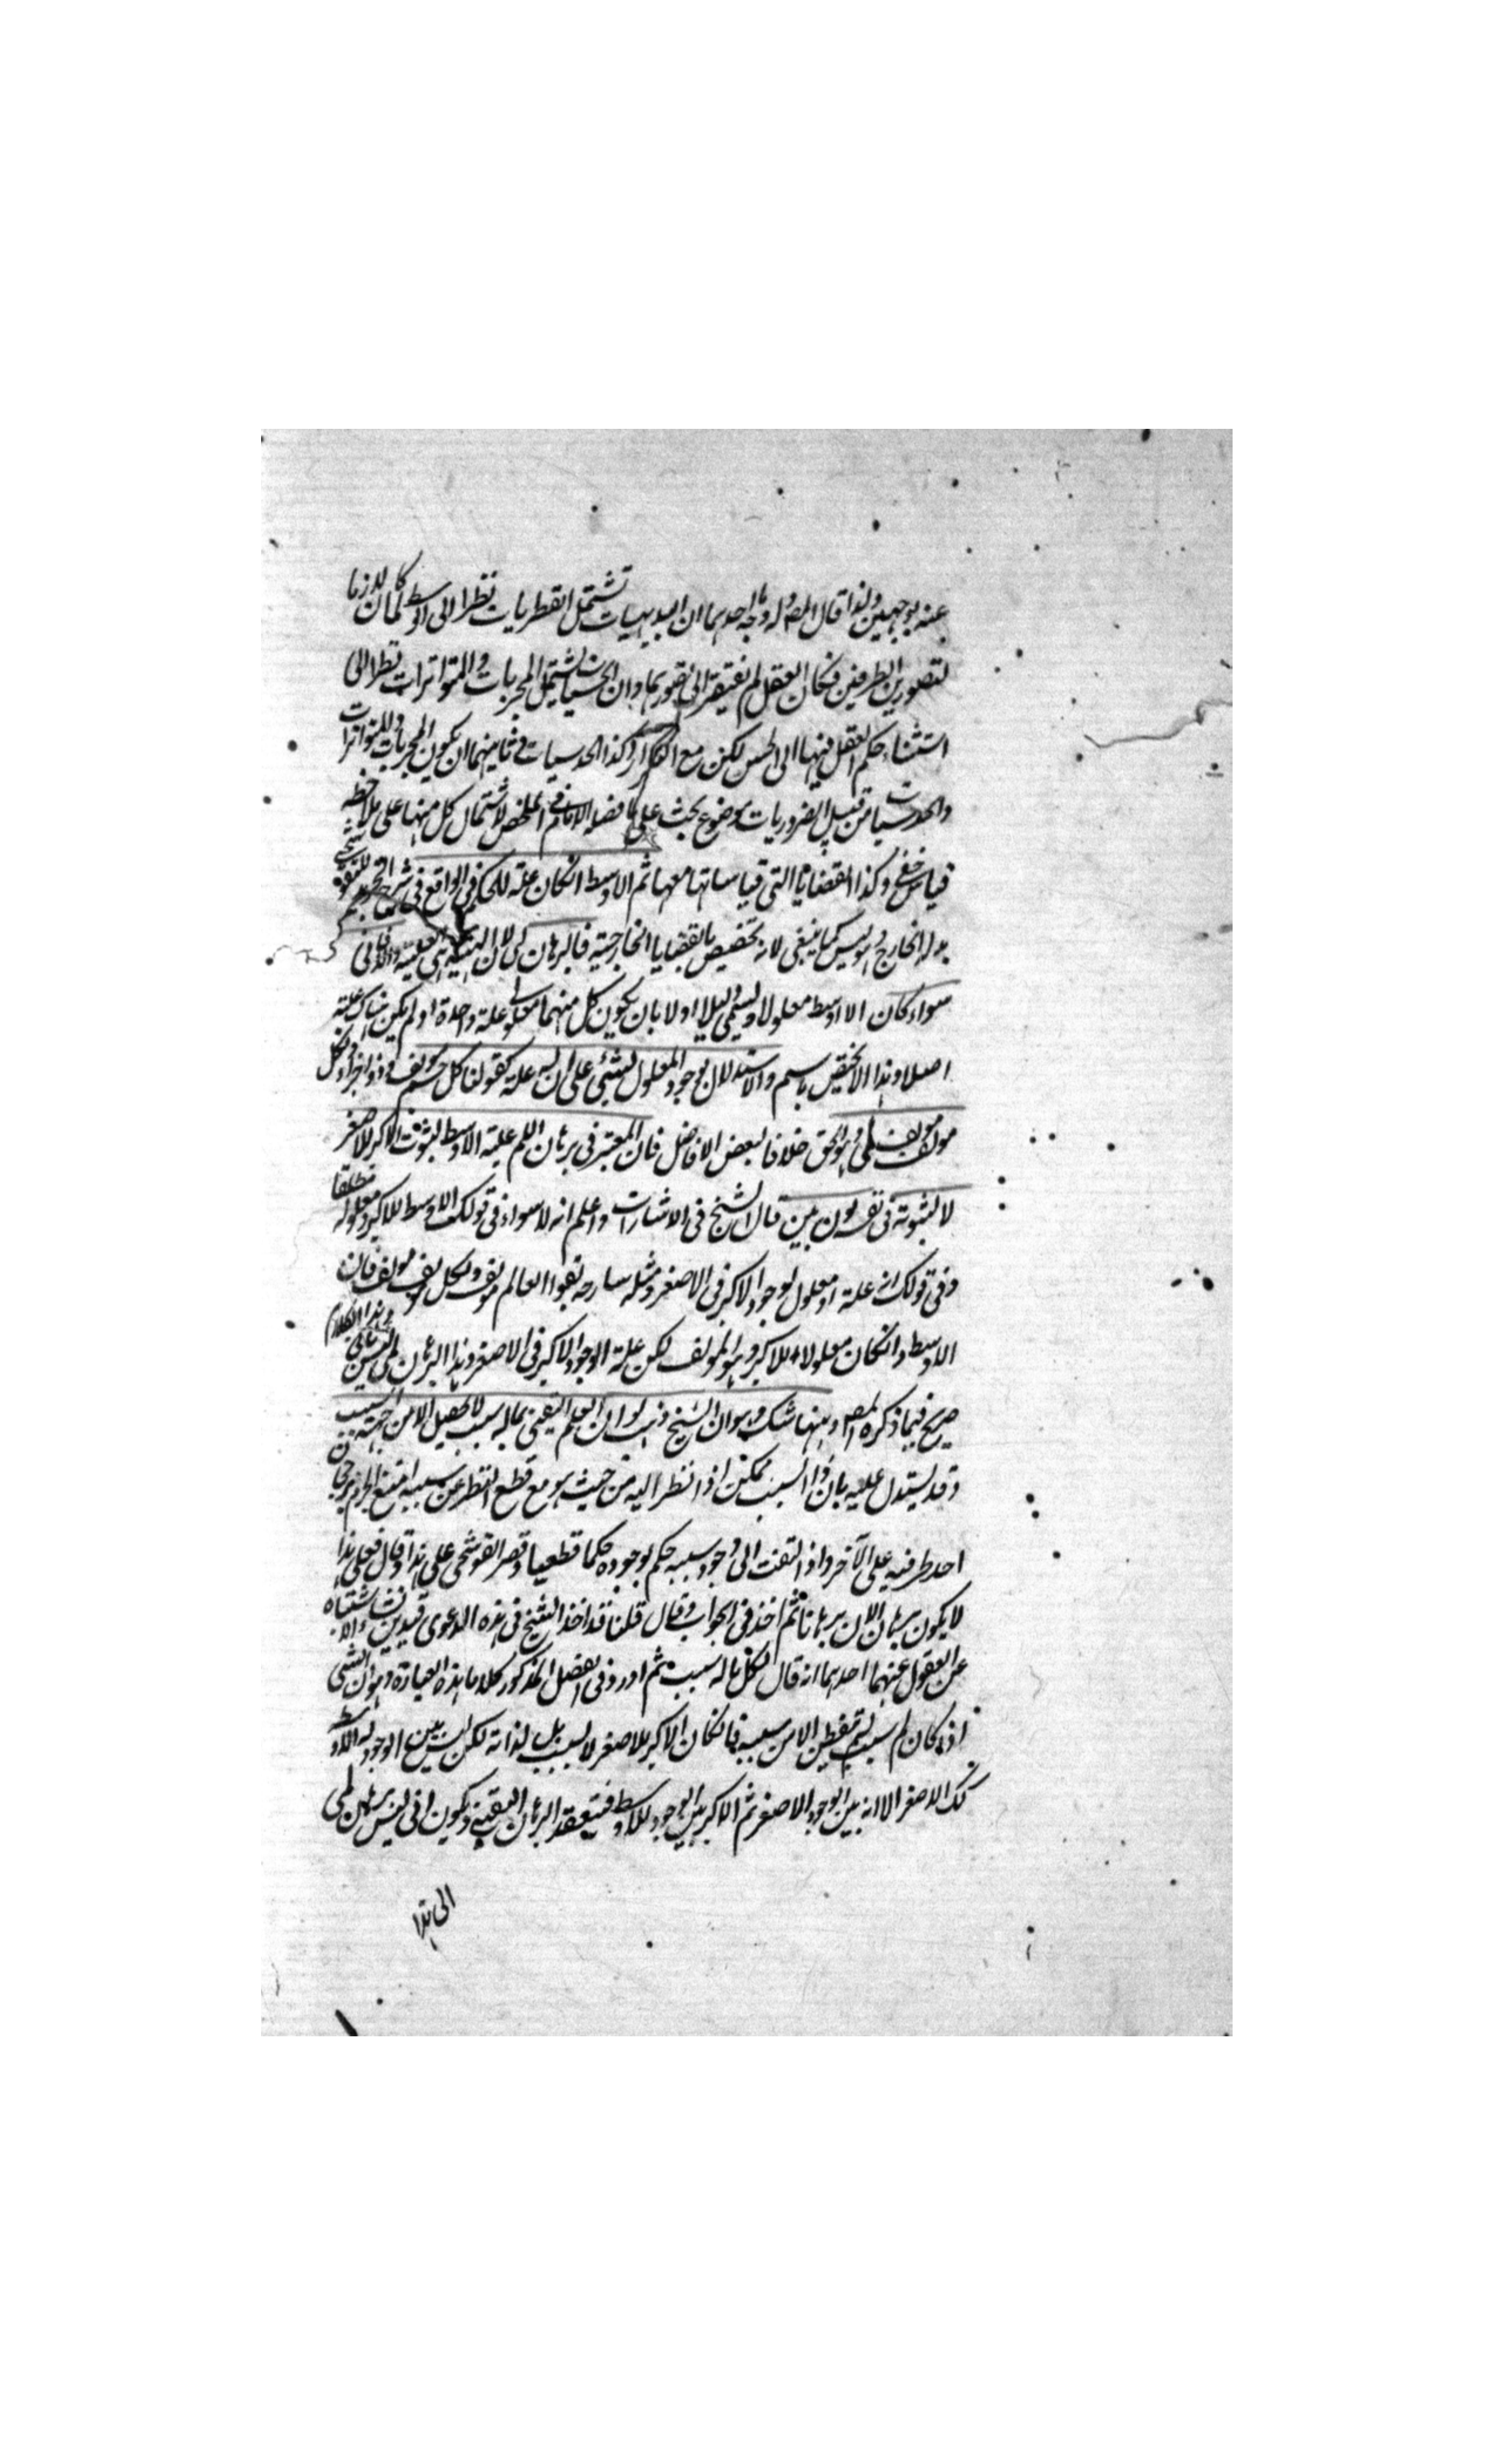 عنه بوجهين ولذا قال المصـ وله وجه احدهما ان البديهيات تشتمل الفطريات نظرا الى الوسط كما كان لازما
لتصور الطرفين فكان العقل لم يفتقر الى تصورهما وان الحسيات تشتمل المجربات والمتواترات نظرا الى
استثناء حكم العقل فيها الى الحس لكن مع التكرار وكذا الحدسيات ثانيهما ان يكون المجربات والمتواترات
والحدسيات من قبيل الضروريات موضوع بحث على ما فصله الامام في الملخص لاشتمال كل منها على ملاحظة
قياس خفي وكذا القضايا التي قياساتها معها ثم الاوسط انكان علة للحكم في الواقع في شرح
بدله الخارج وليس كما ينبغي لانه تخصيص بالقضايا الخارجية فالبرهان لمي لان اللمية هي العلية والا فاني
سواء كان الاوسط معلولا ويسمى دليلا اولا بان يكون كل منهما معلولي علة واحدة او لم يكن هناك علية
اصلا وهذا لا يختص باسم والاستدلال بوجود المعلول لشيء على ان له علة كقولنا كل جسم مؤلف ولكل
مؤلف مؤلف لمي وهو الحق خلافا لبعض الافاضل فان المعتبر في برهان اللم علية الاوسط لثبوت الاكبر للاصغر
لا لثبوته في نفسه وبينهما بون بين قال الشيخ في الاشارات واعلم انه لا سواء في قولك الاوسط للاكبر ومعلوله مطلقا
وفي قولك انه علة او معلول لوجود الاكبر في الاصغر ومثله شارحه بقولنا العالم مؤلف ولكل مؤلف مؤلف فان
الاوسط وانكان معلولا للاكبر وهو المؤلف لكن علة لوجود الاكبر في الاصغر وهذا البرهان لمي وهذا الكلام
صريح فيما ذكره المصـ وههنا شك وهو ان الشيخ ذهب الى ان العلم اليقيني بما له سبب لا يحصل الا من جهة السبب
وقد يستدل عليه بان ذا السبب ممكن اذا نظر اليه من حيث هو مع قطع النظر عن سببه امتنع الجزم برجحان
احد طرفيه على الآخر واذا التفت الى وجود سببه حكم بوجوده حكما قطعيا وقصر القوشجي على هذا وقال فعلى هذا
لا يكون برهان الان برهانا ثم اخذ في الجواب وقال قلنا قد اخذ الشيخ في هذه الدعوى قيدين
عن العقول عنهما احدهما انه قال لكل ما له سبب ثم اورد في الفصل المذكور كلاما بهذه العبارة وهو ان الشيء
اذا كان له سبب لم يتيقن الا من سببه فانكان الاكبر للاصغر لا بسبب بل لذاته لكن ليس بين الوجود له والاوسط
كك للاصغر الا انه بين الوجود للاصغر ثم الاكبر بين الوجود للاوسط فينعقد البرهان اليقيني ويكون اني ليس برهان لمي
الى هذا